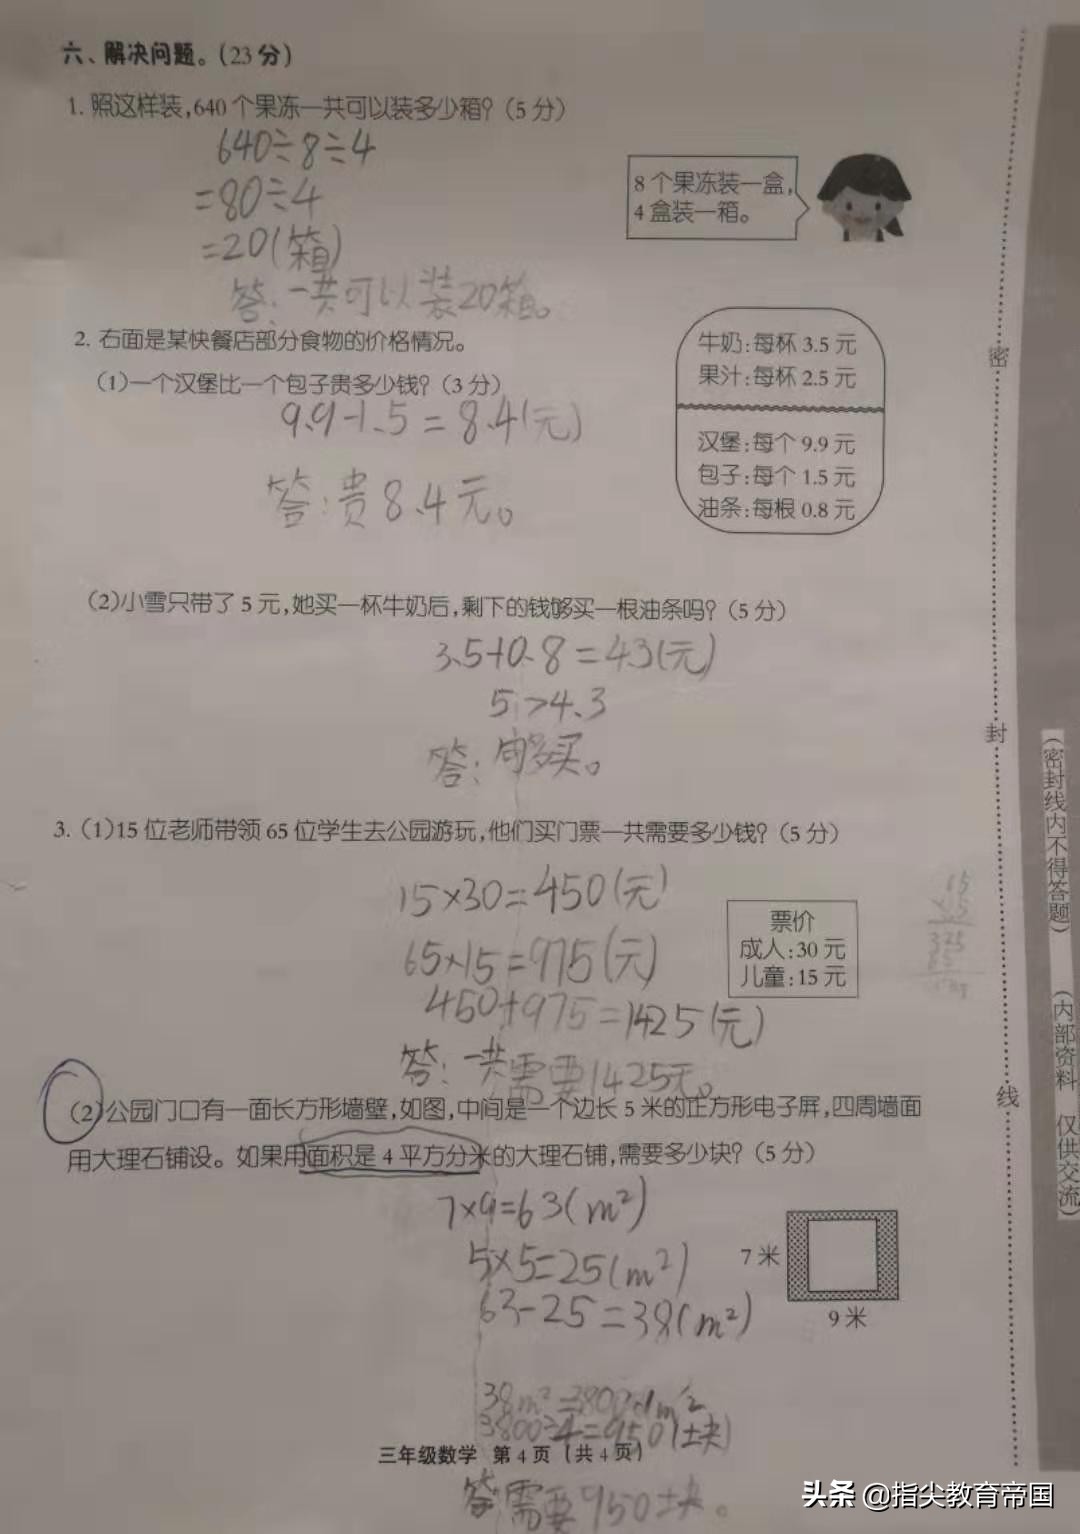 六、解决问题。(23分)
1. 照这样装,640个果冻一共可以装多少箱?(5分)
640÷8÷4
=80÷4
=20(箱)
答:一共可以装20箱。
8个果冻装一盒,
4盒装一箱。
2. 右面是某快餐店部分食物的价格情况。
(1)一个汉堡比一个包子贵多少钱?(3分)
9.9-1.5=8.4(元)
答:贵8.4元。
牛奶:每杯3.5元
果汁:每杯2.5元
汉堡:每个9.9元
包子:每个1.5元
油条:每根0.8元
(2)小雪只带了5元,她买一杯牛奶后,剩下的钱够买一根油条吗?(5分)
3.5+0.8=4.3(元)
5>4.3
答:够买。
3.(1)15位老师带领65位学生去公园游玩,他们买门票一共需要多少钱?(5分)
15×30=450(元)
65×15=975(元)
450+975=1425(元)
答:一共需要1425元。
票价
成人:30元
儿童:15元
(2)公园门口有一面长方形墙壁,如图,中间是一个边长5米的正方形电子屏,四周墙面
用大理石铺设。如果用面积是4平方分米的大理石铺,需要多少块?(5分)
7×9=63(m²)
5×5=25(m²)
63-25=38(m²)
7米
9米
38m²=3800dm²
3800÷4=950(块)
三年级数学 第4页(共4页)
答:需要950块。
密
封
线
(密封线内不得答题)
(内部资料 仅供交流)
头条 @指尖教育帝国